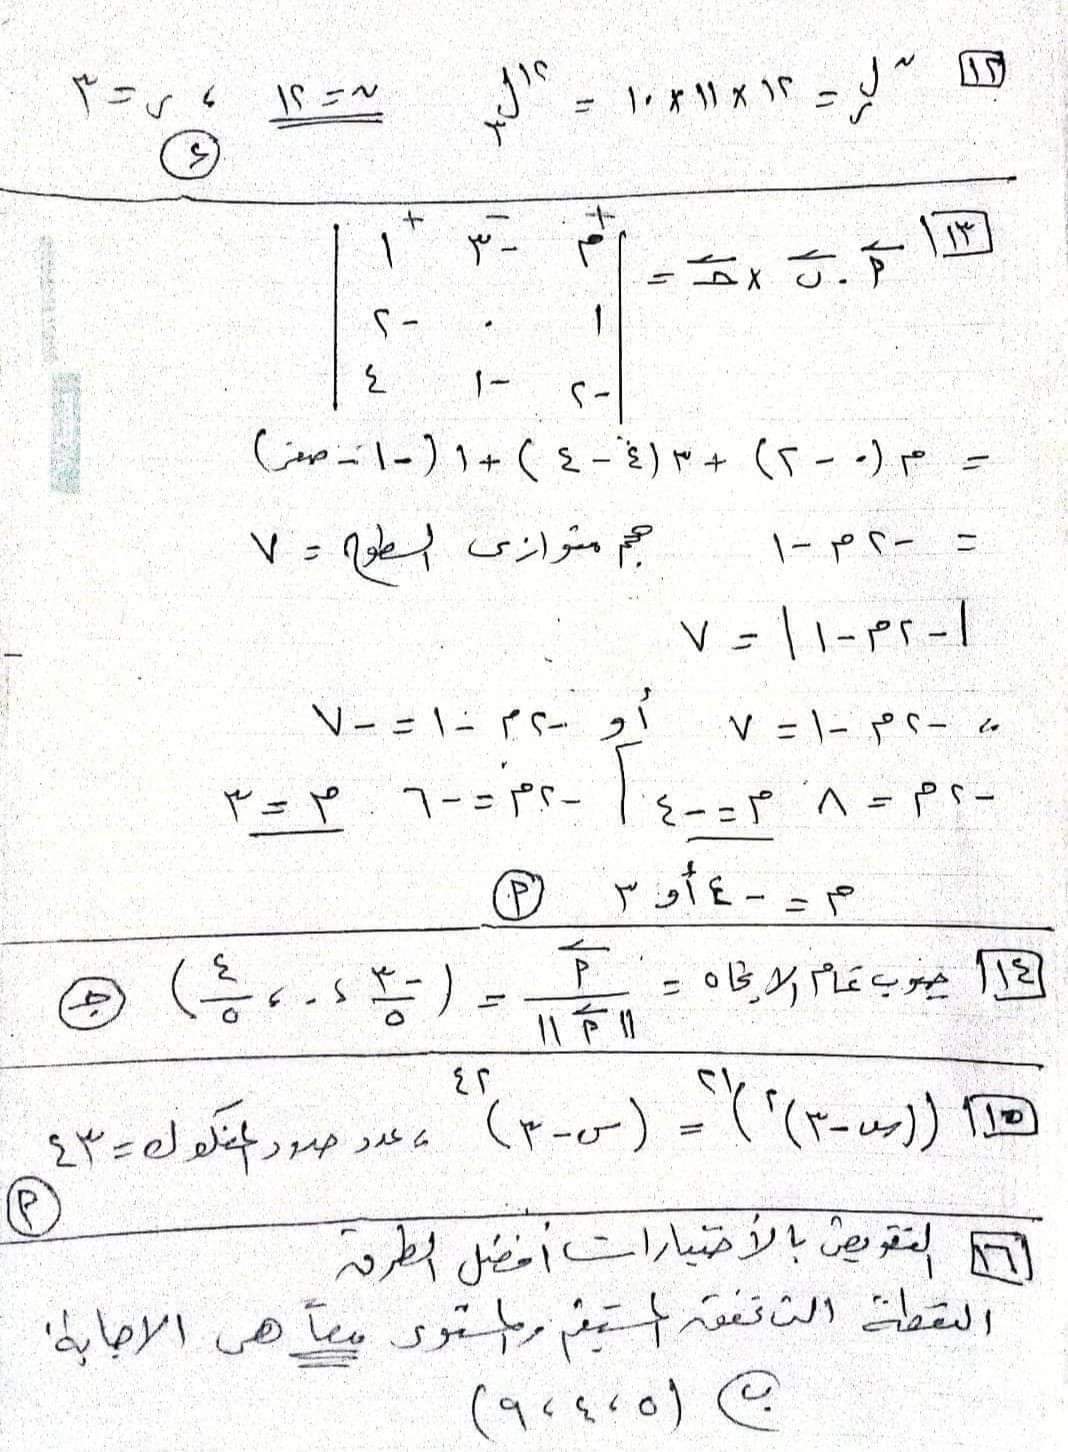 ١٢ ⁿلر = ١٢ × ١١ × ١٠ = ¹²ل₃ ن = ١٢ ، ر = ٣
ء
١٣ أ . ب × جـ = | م -٣ ١ |
١ ٠ -٢
-٢ -١ ٤
= م (٠ - ٢) + ٣ (٤ - ٤) + ١ (-١ - صفر)
= -٢م - ١ حجم متوازى السطوح = ٧
|-٢م - ١| = ٧
-٢م - ١ = ٧ أو -٢م - ١ = -٧
-٢م = ٨ م = -٤ -٢م = -٦ م = ٣
م = -٤ أو ٣ أ
١٤ جيوب تمام الاتجاه = أ / ||أ|| = (-٣/٥ ، ٠ ، ٤/٥) جـ
١٥ ((س - ٣)²)²¹ = (س - ٣)⁴² ، عدد حدود المفكوك = ٤٣
أ
١٦ التعويض بالأختيارات أفضل الطرق
النقطة التى تحقق المستقيم والمستوى معاً هى الاجابة
ب (٥ ، ٤ ، ٩)